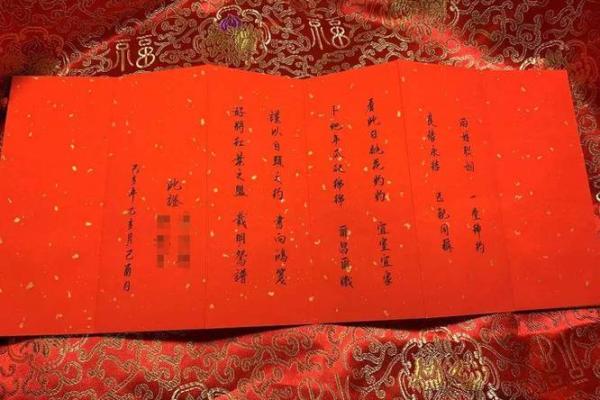 兩姓联姻 一堂締約
良緣永结 匹配同稱
看此日桃花灼灼 宜室宜家
卜他年瓜瓞綿綿 爾昌爾熾
謹以白頭之約 書向鴻箋
好將红葉之盟 載明鴛譜
此證
己亥年乙亥月己酉日